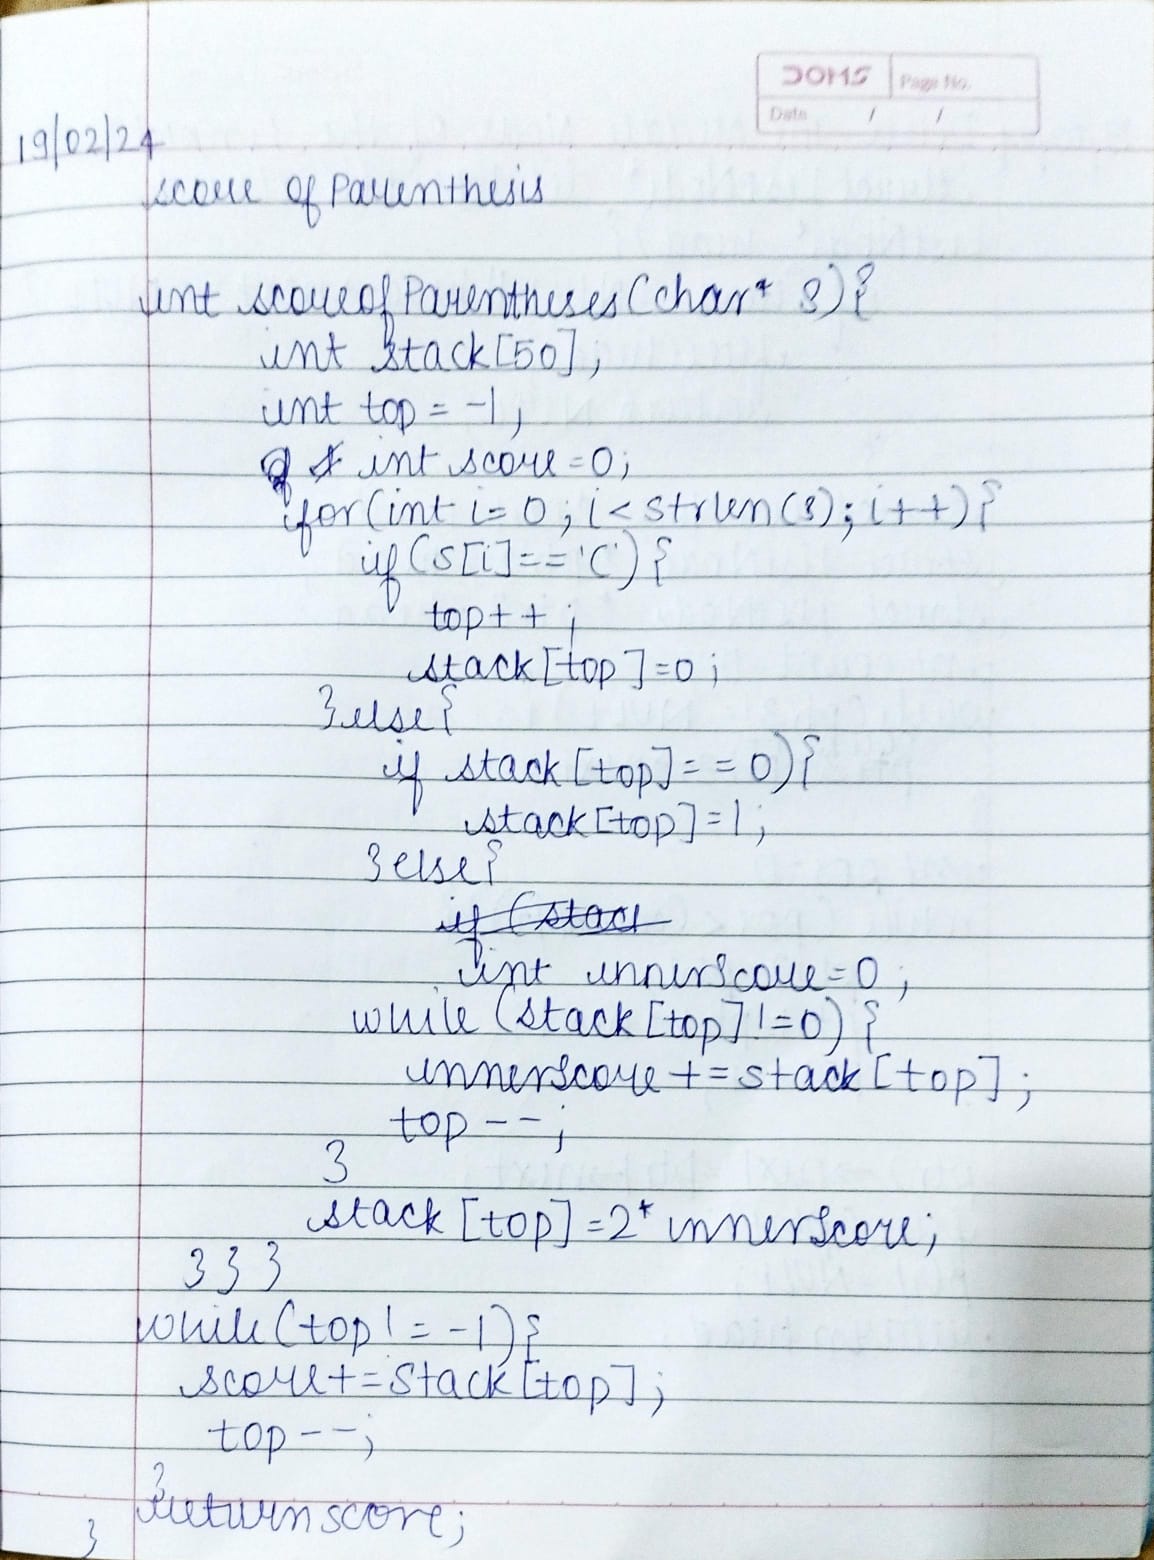 DOMS Page No.
Date / /
19/02/24
score of Parenthesis
int scoreofParentheses(char* s){
int stack[50];
int top = -1;
int score=0;
for(int i=0; i<strlen(s); i++){
if(s[i]=='('){
top++;
stack[top]=0;
}else{
if stack[top]==0){
stack[top]=1;
}else{
if (stack
int innerscore=0;
while(stack[top]!=0){
innerscore+=stack[top];
top--;
}
stack[top]=2*innerscore;
}}}
while(top!=-1){
score+=stack[top];
top--;
}
return score;
}